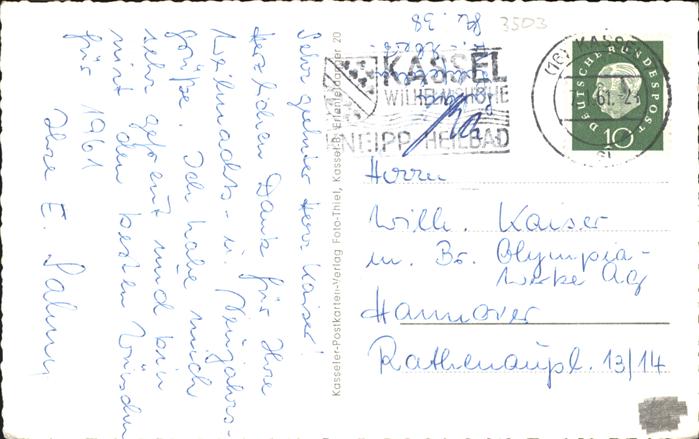 Sehr geehrter Herr Kaiser!
Herzlichen Dank für Ihre
Weihnachts- u. Neujahrs-
grüße. Ich habe mich
sehr gefreut und bin
mit den besten Wünschen
für 1961
Ihre E.
Kasseler-Postkarten-Verlag Foto-Thiel, Kassel-B., Erlenfeldweg 20
3503
KASSEL
WILHELMSHÖHE
KNEIPP-HEILBAD
(16) KASSEL
61.-2
DEUTSCHE BUNDESPOST
10
Herrn
Willi. Kaiser
i. Br. Olympia-
Werke AG
Hannover
Rathenaupl. 13/14